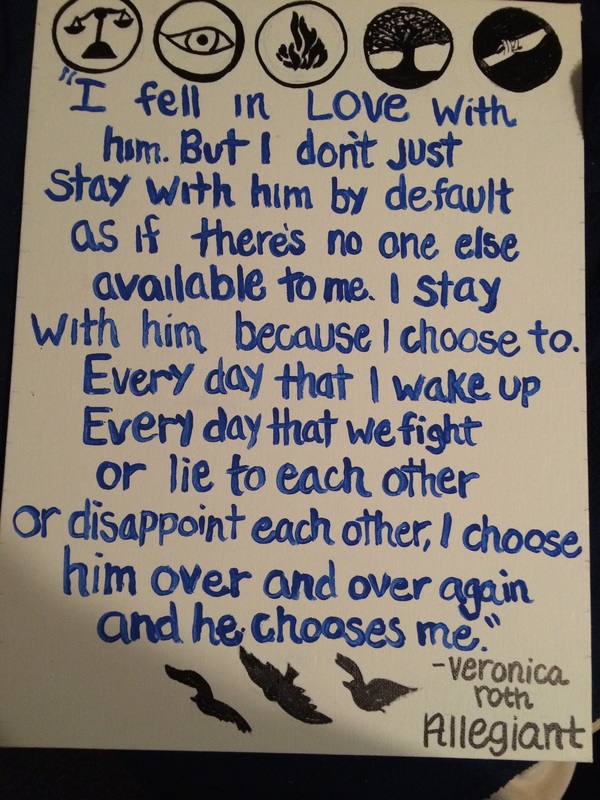 "I fell in LOVE with
him. But I don't just
stay with him by default
as if there's no one else
available to me. I stay
with him because I choose to.
Every day that I wake up
Every day that we fight
or lie to each other
or disappoint each other, I choose
him over and over again
and he chooses me."
-veronica
roth
Allegiant